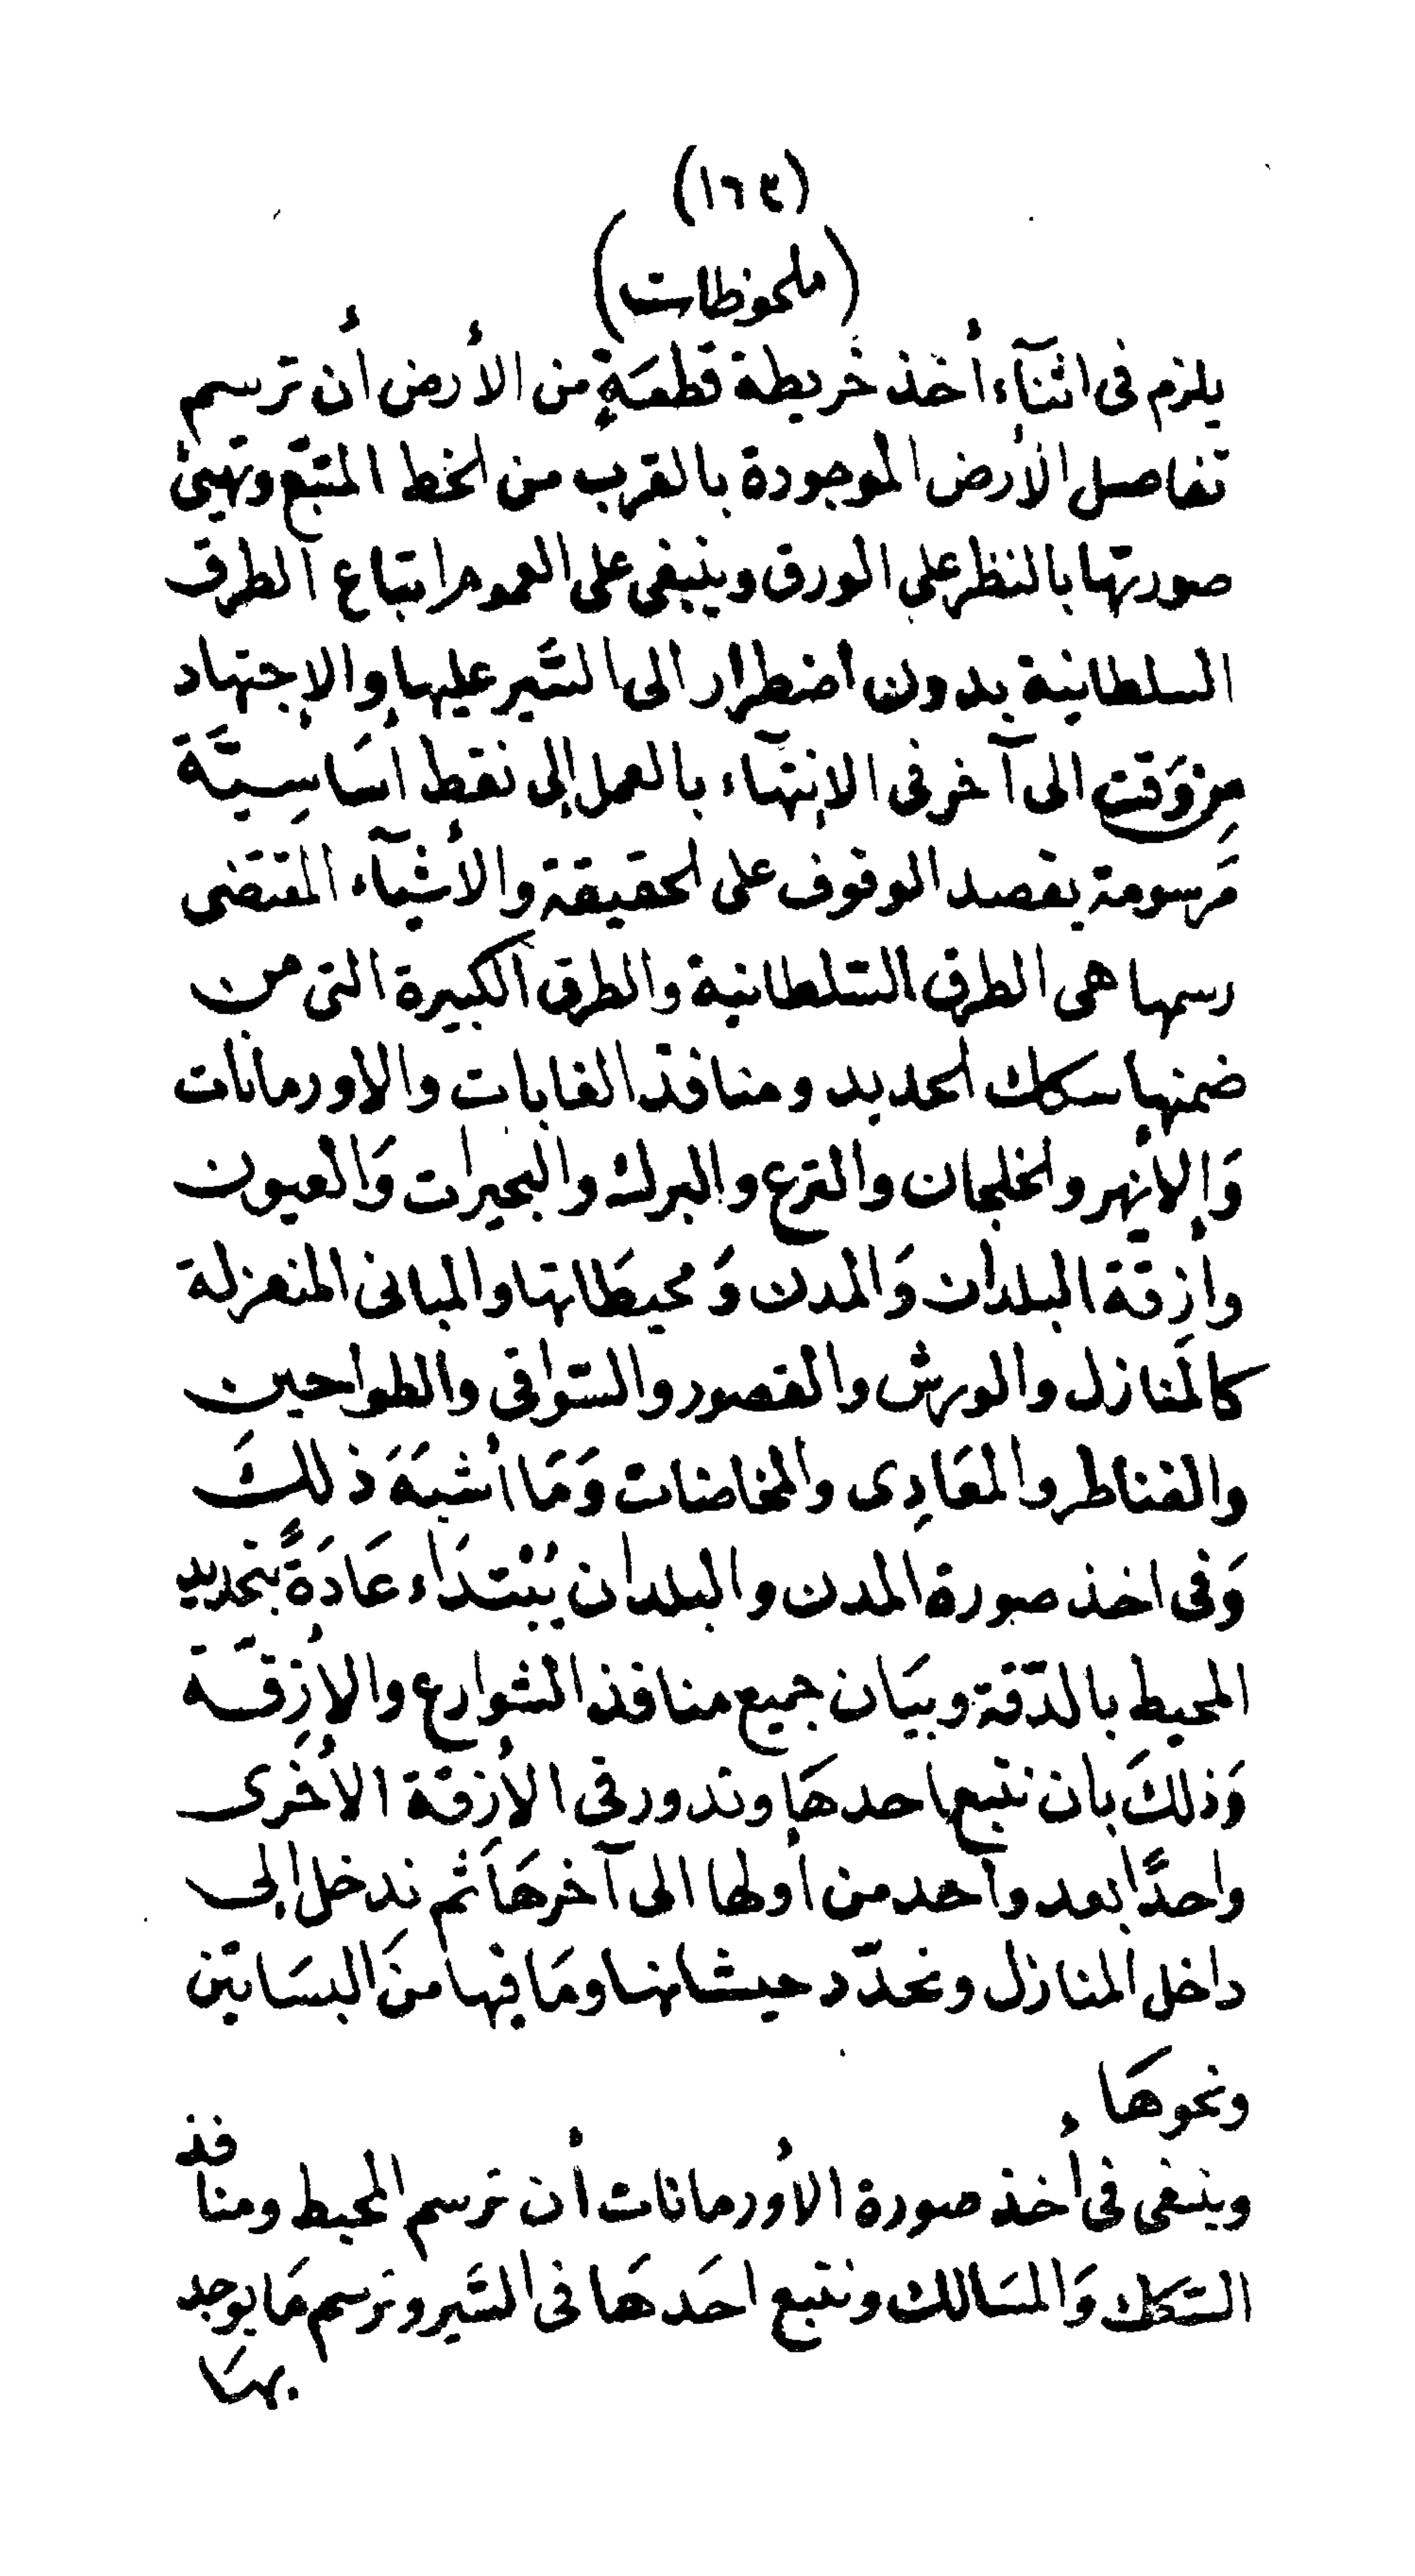 (١٦٤)
(ملحوظات)
يلزم فى اثنآء أخذ خريطة قطعَةٍ من الأرض أن ترسم
تفاصل الأرض الموجودة بالقرب من الخط المتبّع وتهيئ
صورتها بالنظر على الورق وينبغى على العموم اتباع الطرق
السلطانية بدون اضطرار الى السَّير عليها والإجتهاد
مِن وَقت الى آخر فى الإنتهآء بالعمل إلى نقط أسَاسِيَّة
مَرسومة بقصد الوقوف على الحقيقة والأشيآء المقتضى
رسمها هى الطرق السّلطانية والطرق الكبيرة التى من
ضمنها سكك الحديد ومنافذ الغابات والاورمانات
وَالأنهر والخلجان والترع والبرك والبحيرات وَالعيون
وأزِقّة البلدان وَالمدن وَ محيطَاتها والمبانى المنعزلة
كالمنَازل والورش والقصور والسّواقى والطواحين
والقناطر والمعَادِى والمخاضات وَمَا أشبَهَ ذلكَ
وَفى اخذ صورة المدن والبلدان يُبْتدَاء عَادَةً بتحديد
المحيط بالدّقة وبيَان جميع منافذ الشوارع والأزِقَّة
وَذلكَ بان نتبع احدهَا وندور فى الأزقة الأخرى
واحدًا بعد واحد من أولها الى آخرهَا ثم ندخل إلى
داخل المنازل ونحدّد حيشانها ومَا فيها منَ البسَاتين
ونحوهَا
وينبغى فى أخذ صورة الأورمانات أن ترسم المحيط ومنافذ
السّكك وَالمسَالك ونتبع احَدهَا فى السَّير ونرسم مَا يوجد
بهَا